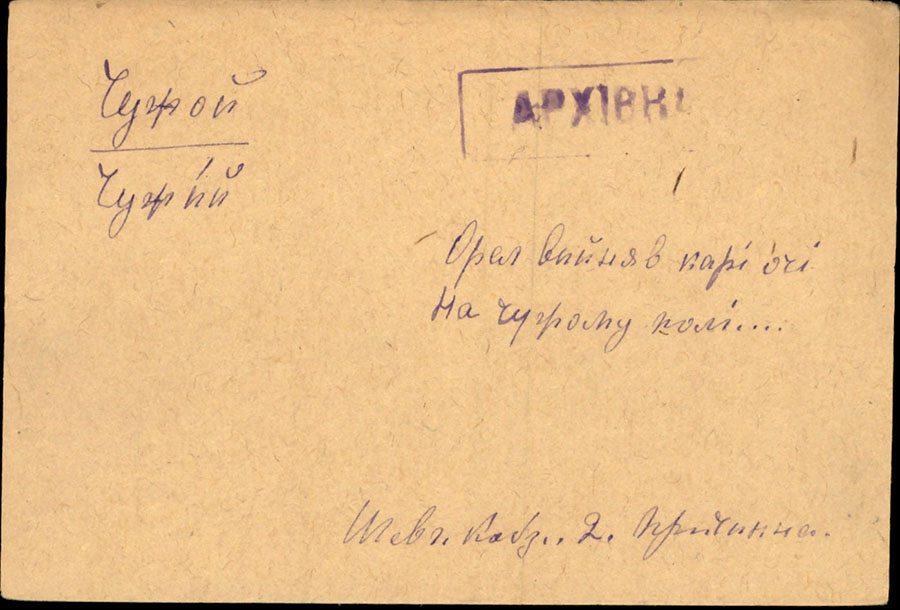 Чужой
АРХІВН
Чужи́й
Орел вийняв карі очі
На чужому полі....
Шевч. Кобз.. 2. Причинна.